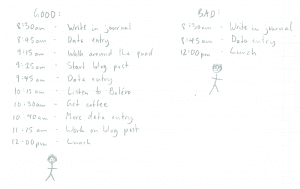 GOOD:
8:30am - Write in journal
8:45am - Data entry
9:15am - Walk around the quad
9:25am - Start blog post
9:45am - Data entry
10:15am - Listen to Boléro
10:30am - Get coffee
10:40am - More data entry
11:15am - Work on blog post
12:00pm - Lunch
BAD:
8:30am - Write in journal
8:45am - Data entry
12:00pm - Lunch